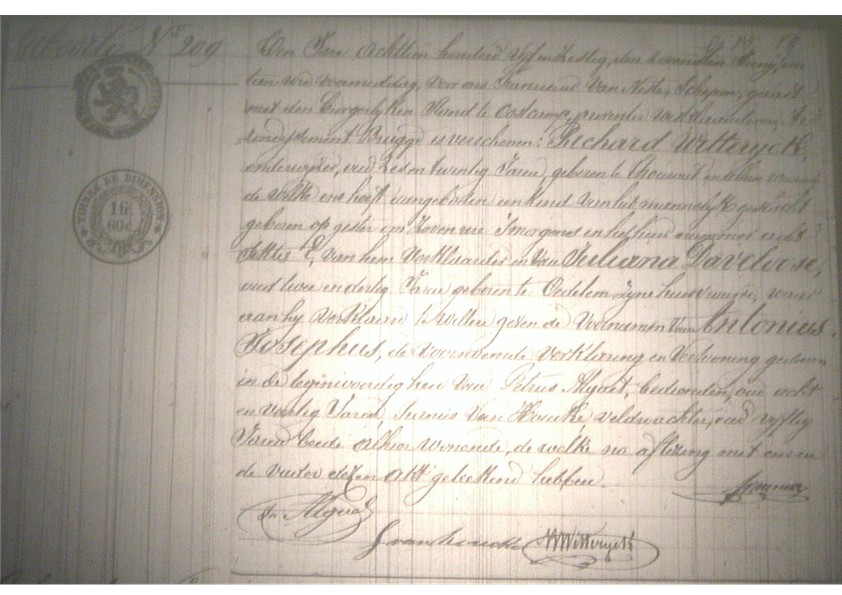 Geboorte Nr 209
Den Jare Achttien honderd vijf en zestig, den Juny, om
tien ure voormiddag, voor ons Schepen,
met den Burgerlyken Stand te Oostcamp, provintie westvlaanderen, Ar-
rondissement Brugge is verschenen: Richard Witteryck,
onderwyzer, oud zes en twentig Jaren, geboren te en alhier
de welke ons heeft aangeboden een kind van het mannelyk geslacht
geboren op gister om zeven ure
Sektie E, van hem Verklaarder en van Juliana Daveloose,
oud twee en dertig Jaren geboren te Oedelem zyne huisvrouwe, waer
aan hy verklaard te willen geven de voornamen van Antonius
Josephus, de voornoemde verklaring en vertooning gedaan
in de tegenwoordigheid van Petrus bediende, oud acht
en veertig Jaren, Van Houcke, veldwachter, oud vyftig
Jaren beede alhier wonende, de welke na aflezing met ons en
de vader dezen akt geteekend hebben.
TIMBRE DE DIMENSION
1 fr
60 c.
vanhoucke
Witteryck